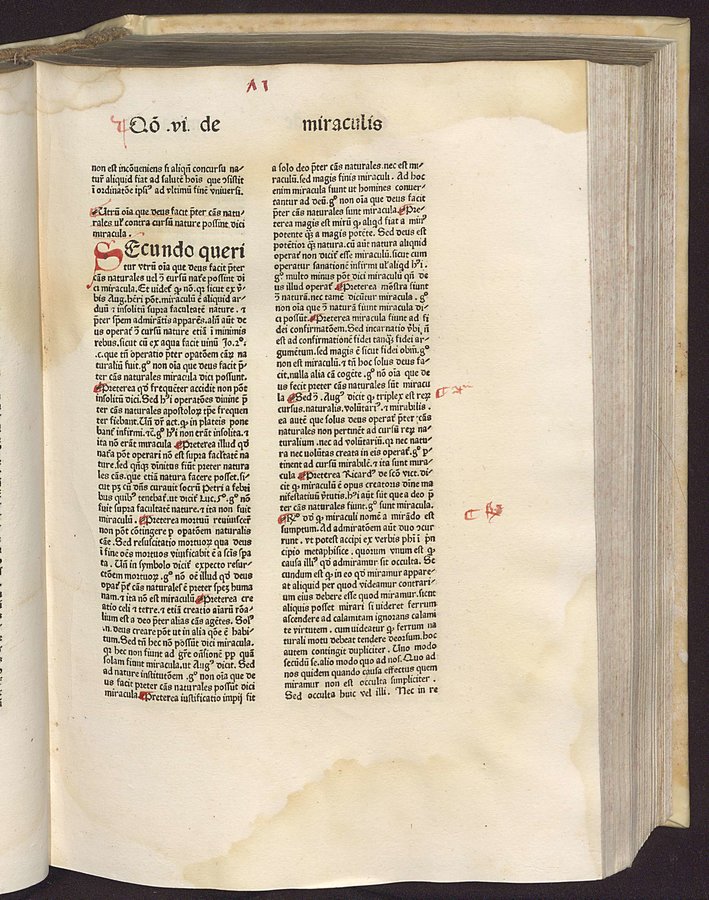 A I
Qō .vi. de miraculis
non est incōueniens si aliqn̄ concursu na-
tur̄ aliquid fiat ad salutē hoīs que ↄsistit
ī ordinatōe ipsiꝰ ad vltimū finē vniuersi.
Utrū oīa que deus facit p̄ter cās natu-
rales ul' contra cursū nature possunt dici
miracula.
SEcundo queri
tur vtrū oīa que deus facit p̄ter
cās naturales vel ↄ̄ cursū nat̄e possunt di
ci miracula. Et uidet̄ ꝙ nō. qꝛ sicut ex v̄
bis Aug. hēri pōt. miraculū ē aliquid ar-
duū ⁊ insolitū supra facultatē nature. ⁊
p̄ter spem admirātis apparēs. alit̄ aūt de
us operat̄ ↄ̄ cursū nature etiā ī minimis
rebus. sicut cū ex aqua facit uinū Jo. 2º.
.c. que tn̄ operatio p̄ter opatōem cāꝝ na
turaliū fuit. gº non oīa que deus facit p̄-
ter cās naturales miracula dici possunt.
Preterea qd̓ frequēter accidit non pōt
insolitū dici. Sed hꝰi operatōes diuine p̄
ter cās naturales apostoloꝝ tp̄e frequen
ter fiebant. Un̄ dr̄ act. ꝙ in plateis pone
banſ infirmi. ⁊c̄. gº hꝰi non erāt insolita. ⁊
ita nō erāt miracula. Preterea illud qd̓
nat̄a pōt operari nō est supra facltatē na
ture. sed qn̄qꝫ diuinitus fiūt preter natura
les cās. que etiā natura facere posset. si-
cut pꝫ cū dn̄s curauit socrū Petri a febri
bus quibꝰ tenebat̄. ut dicit̄ Luc. 5º. gº nō
fuit supra facultatē nature. ⁊ ita non fuit
miraculū. Preterea mortuū reuiuiscer̄
non pōt cōtingere p̄ opatōem naturalis
cāe. Sed resuscitatio mortuoꝝ qua deus
ī fine oēs mortuos viuificabit ē a scīs spa
ta. Un̄ in symbolo dicit̄ expecto resur-
ctōem mortuoꝝ. gº nō oē illud qd̓ deus
opat̄ p̄t̄ cās naturales ē preter spēꝫ huma
nam. ⁊ ita nō est miraculū. Preterea cre
atio celi ⁊ terre. ⁊ etiā creatio aīarū rōa-
lium est a deo p̄ter alias cās agētes. Solꝰ
.n. deus creare pōt ut in alia qōe ē habi-
tum. Sed tn̄ hec nō possūt dici miracula.
qꝛ hec non fiunt ad gr̄e oñsionē pp̄ quā
solam fiunt miracula. ut Augꝰ dicit. Sed
ad nature institutōem. gº non oīa que de
us facit preter cās naturales possūt dici
miracula. Preterea iustificatio impij fit
a solo deo p̄ter cās naturales. nec est mi-
raculū. sed magis finis miraculi. Ad hoc
enim miracula fiunt ut homines conuer-
tantur ad deū. gº non oīa que deus facit
p̄ter cās naturales sunt miracula. Pre-
terea magis est mirū ꝙ aliqd̓ fiat a minꝰ
potente qꝫ a magis potēte. Sed deus est
potētior qꝫ natura. cū aūt natura aliquid
operat̄ non dicit̄ esse miraculū. sicut cum
operatur sanationē infirmi ul' aliqd̓ hꝰi.
gº multo minus pōt dici miraculū qn̄ de
us illud operat̄. Preterea mōstra fiunt
ↄ̄ naturā. nec tamē dicūtur miracula. gº
non oīa que ↄ̄ naturā fiunt miracula di-
ci possūt. Preterea miracula fiunt ad fi
dei confirmatōem. Sed incarnatio v̄bi n̄
est ad confirmationē fidei tanqꝫ fidei ar-
gumētum. sed magis ē sicut fidei obiīm. gº
non est miraculū. ⁊ tn̄ hoc solus deus fa-
cit. nulla alia cā cogēte. gº nō oīa que de-
us fecit preter cās naturales sūt miracu
la. Sed ↄ̄. Augꝰ. dicit ꝙ triplex est reꝝ
cursus. naturalis. volūtariꝰ. ⁊ mirabilis.
ea autē que solus deus operat̄ p̄ter cās
naturales non pertinēt ad cursū reꝝ na-
turalium. nec ad voluntariū. qꝛ nec natu-
ra nec uolūtas creata in eis operat̄. gº p̄-
tinent ad cursū mirabilē. ⁊ ita sunt mira-
cula. Preterea Ricardꝰ de scō vict. di-
cit ꝙ miraculū ē opus creatoris dīne ma
nifestatiuū v̄tutis. hꝰi aūt sūt que a deo p̄
ter cās naturales fiunt. gº sunt miracula.
Rº dd̓ ꝙ miraculi nomē a mirādo est
sumptum. Ad admiratōem aūt duo ↄcur
runt. vt potest accipi ex verbis phī ī prin
cipio metaphisice. quorum vnum est ꝙ
causa illiꝰ qd̓ admiramur sit occulta. Se
cundum est ꝙ in eo qd̓ miramur appare-
at aliquid per quod videamur contrari-
um eius debere esse quod miramur. sicut
aliquis posset mirari si uideret ferrum
ascendere ad calamitam ignorans calami
te virtutem. cum uideatur ꝙ ferrum na
turali motu debeat tendere deorsum. hoc
autem contingit dupliciter. Uno modo
secūdū se. alio modo quo ad nos. Quo ad
nos quidem quando causa effectus quem
miramur non est occulta simpliciter.
Sed occulta huic vel illi. Nec in re